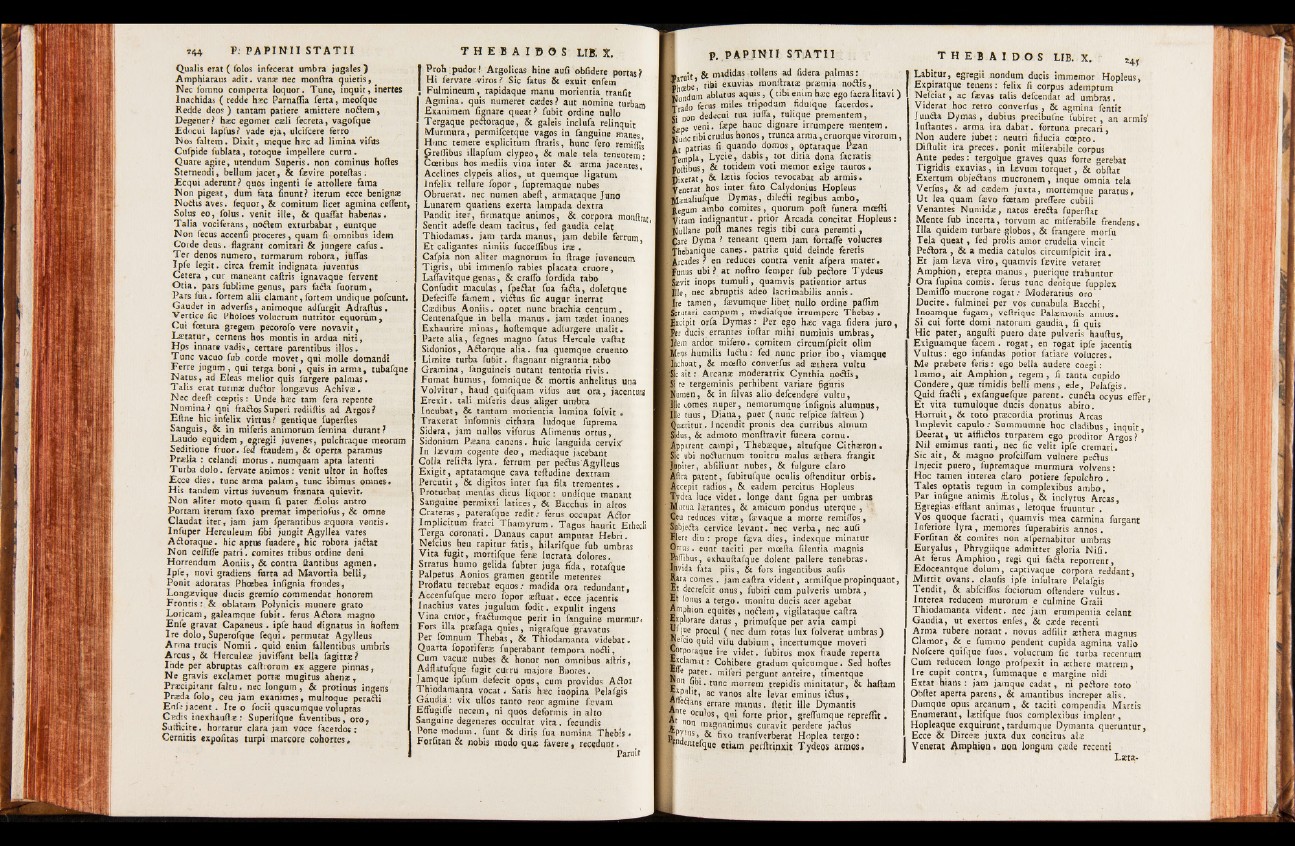 244 P. PAPINII STATII
Qualis erat ( solos infecerat umbra jugales )
Amphiaraus adit. vanæ nec monstra quietis,
Nec somno comperta loquor. Tune, inquit, inertes
Inachidas ( redde hæc Parnassia serta, meosque
Redde deos ) tantam patiere amittere noctem,
Degener? hæc egomet cæli secreta, vagosque
Edocui lapsus? vade eja, ulciscere ferro
Nos saltem. Dixit, meque hæc ad limina visus
Cuspide sublata, totoque impellere curru.
Quare agite, utendum Superis. non cominus hostes
Sternendi, bellum jacet, & sævire potestas.
Ecqui aderunt? quos ingenti se attollere fama
Non pigeat, dum fata sinunt? iterum ecce benignæ
Noctis aves. sequor, & comitum licet agmina cessent,
Solus eo, solus. venit ille, & quassat habenas.
Talia vociferans, noctem exturbabat, euntque
Non secus accensi proceres, quam si omnibus idem
Corde deus. flagrant comitari & jungere casus.
Ter denos numero, turmarum robora, jussus
Ipse legit. circa fremit indignata juventus
Cetera, cur maneant castris ignavaque servent
Otia. pars sublime genus, pars facta suorum,
Pars sua. sortem alii clamant, sortem undique poscunt.
Gaudet in adversis, animoque adsurgit Adrastus.
Vertice sic Pholoes volucrum nutritor equorum,
Cui fœtura gregem pecoroso vere novavit,
Lætatur, cernens hos montis in ardua niti,
Hos innare vadis, certare parentibus illos.
Tunc vacuo sub corde movet, qui molle domandi
Ferre jugum, qui terga boni, quis in arma, tubasque
Natus, ad Eleas melior quis surgere palmas.
Talis erat turmæ ductor longævus Achivæ.
Nec deest cœptis: Unde hæc tam sera repente
Nomina? qui fractos Superi rediistis ad Argos?
Estne hic infelix virtus? gentique superstes
Sanguis, & in miseris animorum semina durant?
Laudo equidem, egregii juvenes, pulchraque meorum
Seditione fruor. sed fraudem, & operta paramus
Prælia: celandi motus. numquam apta latenti
Turba dolo. servate animos: venit ultor in hostes
Ecce dies. tunc arma palam, tunc ibimus omnes.
His tandem virtus juvenum frænata quievit.
Non aliter moto quam si pater Æolus antro
Portam iterum saxo premat imperiosus, & omne
Claudat iter, jam jam sperantibus æquora ventis.
Insuper Herculeum sibi jungit Agyllea vates
Actoraque. hic aptus suadere, hic robora jactat
Non cessisse patri. comites tribus ordine deni
Horrendum Aoniis, & contra stantibus agmen.
Ipse, novi gradiens furta ad Mavortia belli,
Ponit adoratas Phœbea insignia frondes,
Longævique ducis gremio commendat honorem
Frontis: & oblatam Polynicis munere grato
Loricam, galeamque subit. ferus Actora magno
Ense gravat Capaneus. ipse haud dignatus in hostem
Ire dolo, Superosque sequi. permutat Agylleus
Arma trucis Nomii. quid enim fallentibus umbris
Arcus, & Herculeæ juvissent bella sagittæ?
Inde per abruptas castrorum ex aggere pinnas,
Ne gravis exclamet portæ mugitus ahenæ,
Præcipitant saltu. nec longum, & protinus ingens
Præda solo, ceu jam exanimes, multoque peracti
Ense jacent. Ite o socii quacumque voluptas
Cædis inexhaustæ: Superisque faventibus, oro,
Sufficite. hortatur clara jam voce sacerdos:
Cernitis expositas turpi marcore cohortes.
THEBAIDOS LIB. X.
Proh pudor! Argolicas hine ausi obsidere portas?
Hi servare viros? Sic fatus & exuit ensem
Fulmineum, rapidaque manu morientia transit
Agmina. quis numeret cædes? aut nomine turbam
Exanimem signare queat? subit ordine nullo
Tergaque pectoraque, & galeis inclusa relinquit
Murmura, permiscetque vagos in sanguine manes,
Hunc temere explicitum stratis, hunc sero remissis
Gressibus illapsum clypeo, & male tela tenentem:
Cœtibus hos mediis vina inter & arma jacentes,
Acclines clypeis alios, ut quemque ligatum
Infelix tellure sopor, supremaque nubes
Obruerat. nec numen abest, armataque Juno
Lunarem quatiens exerta lampada dextra
Pandit iter, firmatque animos, & corpora monstrat,
Sentit adesse deam tacitus, sed gaudia celat
Thiodamas. jam tarda manus, jam debile ferrum,
Et caligantes nimiis successibus iræ.
Caspia non aliter magnorum in strage juvencum
Tigris, ubi immenso rabies placata cruore,
Lassavitque genas, & crasso sordida tabo
Confudit maculas, spectat sua facta, doletque
Defecisse famem. victus sic augur inerrat
Cædibus Aoniis. optet nunc brachia centum,
Centenasque in bella manus. jam tædet inanes
Exhaurire minas, hostemque adsurgere malit.
Parte alia, segnes magno satus Hercule vastat
Sidonios, Actorque alia. sua quemque cruento
Limite turba subit. stagnant nigrantia tabo
Gramina, sanguineis nutant tentoria rivis.
Fumat humus, somnique & mortis anhelitus una
Volvitur, haud quisquam visus aut ora, jacentum
Erexit. tali miseris deus aliger umbra
Incubat, & tantum morientia lumina solvit.
Traxerat insomnis cithara ludoque suprema
Sidera, jam nullos visurus Alimenus ortus,
Sidonium Pæana canens. huic languida cervix
In lævum cogente deo, mediaque jacebant
Colla relicta lyra. ferrum per pectus Agylleus
Exigit, aptatamque cava testudine dextram
Percutit, & digitos inter sua fila trementes.
Proturbat mensas dirus liquor: undique manant
Sanguine permixti latices, & Bacchus in altos
Crateras, paterasque redit: ferus occupat Actor
Implicitum fratri Thamyrum. Tagus haurit Ethecli
Terga coronati. Danaus caput amputat Hebri.
Nescius heu rapitur fatis, hilarisque sub umbras
Vita fugit, mortisque feræ lucrata dolores.
Stratus humo gelida subter juga fida, rotasque
Palpetus Aonios gramen gentile metentes
Proflatu terrebat equos: madida ora redundant,
Accensusque mero sopor æstuat. ecce jacentis
Inachius vates jugulum fodit. expulit ingens
Vina cruor, fractumque perit in sanguine murmur.
Fors illa præsaga quies, nigrasque gravatus
Per somnum Thebas, & Thiodamanta videbat.
Quarta soporiferæ superabant tempora nocti,
Cum vacuæ nubes & honor non omnibus astris,
Adflatusque fugit curru majore Bootes.
Jamque ipsum defecit opus, cum providus Actor
Thiodamanta vocat. Satis hæc inopina Pelasgis
Gaudia: vix ullos tanto reor agmine sævam
Effugisse necem, ni quos deformis in alto
Sanguine degeneres occultat vita. secundis
Pone modum. sunt & diris sua numina Thebis.
Forsitan & nobis modo quæ favere, recedunt.
Paruit
P. PAPINII STATII
Paruit, & madidas tollens ad sidera palmas:
Phœbe, tibi exuvias monstratæ præmia noctis,
Nondum ablutus aquis, ( tibi enim hæc ego sacra litavi )
Trado ferus miles tripodum fidusque sacerdos.
Si non dedecui tua jussa, tulique prementem,
Sæpe veni. sæpe hanc dignare irrumpere mentem.
Nunc tibi crudus honos, trunca arma, cruorque virorum,
At patrias si quando domos, optataque Pæan
Templa, Lycie, dabis, tot ditia dona sacratis
Postibus, & totidem voti memor exige tauros.
Dixerat, & lætis socios revocabat ab armis.
Venerat hos inter fato Calydonius Hopleus
Mænaliusque Dymas, dilecti regibus ambo,
Regum ambo comites, quorum post funera mœsti
Vitam indignantur. prior Arcada concitat Hopleus:
Nullane post manes regis tibi cura peremti,
Care Dyma? teneant quem jam fortasse volucres
Thebanique canes. patriæ quid deinde feretis
Arcades? en reduces contra venit aspera mater.
Funus ubi? at nostro semper sub pectore Tydeus
Sævit inops tumuli, quamvis patientior artus
Ille, nec abruptis adeo lacrimabilis annis.
Ire tamen, sævumque libet nullo ordine passim
Scrutari campum, mediasque irrumpere Thebas.
Excipit orsa Dymas: Per ego hæc vaga sidera juro,
Per ducis errantes instar mihi numinis umbras,
Idem ardor misero. comitem circumspicit olim
Mens humilis luctu: sed nunc prior ibo, viamque
Inchoat, & mœsto conversus ad æthera vultu
Sic ait: Arcanæ moderatrix Cynthia noctis,
Si te tergeminis perhibent variare figuris
Numen, & in silvas alio descendere vultu,
Ille comes nuper, nemorumque insignis alumnus,
Ille tuus, Diana, puer ( nunc respice saltem )
Quæritur. Incendit pronis dea curribus almum
Sidus, & admoto monstravit funera cornu.
Apparent campi, Thebæque, altusque Cithæron.
Sic ubi nocturnum tonitru malus æthera frangit
Jupiter, absiliunt nubes, & fulgure claro
Astra patent, subitusque oculis ostenditur orbis.
Accepit radios, & eadem percitus Hopleus
Tydea luce videt. longe dant signa per umbras
Mutua lætantes, & amicum pondus uterque,
Ceu reduces vitæ, sævaque a morte remissos,
Subjecta cervice levant. nec verba, nec ausi
Flere diu: prope sæva dies, indexque minatur
Ortus. eunt taciti per mœsta silentia magnis
Passibus, exhaustasque dolent pallere tenebras.
Invida fata piis, & fors ingentibus ausis
Rara comes. jam castra vident, armisque propinquant,
Et decrescit onus, subiti cum pulveris umbra,
Et sonus a tergo. monitu ducis acer agebat
Amphion equites, noctem, vigilataque castra
Explorare datus, primusque per avia campi
Usque procul ( nec dum totas lux solverat umbras )
Nescio quid visu dubium, incertumque moveri
Corporaque ire videt. subitus mox fraude reperta
Exclamat: Cohibete gradum quicumque. Sed hostes
Esse patet. miseri pergunt anteire, timentque
Non sibi. tunc morrem trepidis minitatur, & hastam
Expulit, ac vanos alte levat eminus ictus,
Affectans errare manus. stetit ille Dymantis
Ante oculos, qui forte prior, gressumque repressit.
At non magnanimus curavit perdere jactus
Æpytus, & fixo transverberat Hoplea tergo:
Pendentesque etiam perstrinxit Tydeos armos.
THEBAIDOS LIB. X. 245
Labitur, egregii nondum ducis immemor Hopleus,
Expiratque tenens: felix si corpus ademptum
Nesciat, ac sævas talis descendat ad umbras.
Viderat hoc retro conversus, & agmina sentit
Juncta Dymas, dubius precibusne subiret, an armis
Instantes. arma ira dabat. fortuna precari,
Non audere jubet: neutri fiducia cœpto.
Distulit ira preces. ponit miserabile corpus
Ante pedes: tergoque graves quas forte gerebat
Tigridis exuvias, in lævum torquet, & obstat
Exertum objectans mucronem, inque omnia tela
Versus, & ad cædem juxta, mortemque paratus,
Ut lea quam sævo fœtam pressere cubili
Venantes Numidæ, natos erecta superstat
Mente sub incerta, torvum ac miserabile frendens.
Illa quidem turbare globos, & frangere morsu
Tela queat, sed prolis amor crudelia vincit
Pectora, & a media catulos circumspicit ira.
Et jam læva viro, quamvis sævire vetaret
Amphion, erepta manus, puerique trahuntur
Ora supina comis. serus tunc denique supplex
Demisso mucrone rogat: Moderatius oro
Ducite. fulminei per vos cunabula Bacchi,
Inoamque fugam, vestrique Palæmonis annos.
Si cui forte domi natorum gaudia, si quis
Hic pater, angusti puero date pulveris haustus,
Exiguamque facem. rogat, en rogat ipse jacentis
Vultus: ego infandas potior satiare volucres.
Me præbete feris: ego bella audere coegi:
Immo, ait Amphion, regem, si tanta cupido
Condere, quæ timidis belli mens, ede, Pelasgis.
Quid fracti, exsanguesque parent. cuncta ocyus effer,
Et vita tumuloque ducis donatus abito.
Horruit, & toto præcordia protinus Arcas
Implevit capulo: Summumne hoc cladibus, inquit,
Deerat, ut afflictos turparem ego proditor Argos?
Nil emimus tanti, nec sic velit ipse cremari.
Sic ait, & magno proscissum vulnere pectus
Injecit puero, supremaque murmura volvens:
Hoc tamen interea claro potiere sepulchro.
Tales optatis regum in complexibus ambo,
Par insigne animis Ætolus, & inclytus Arcas,
Egregias efflant animas, letoque fruuntur.
Vos quoque sacrati, quamvis mea carmina surgant
Inferiore lyra, memores superabitis annos.
Forsitan & comites non aspernabitur umbras
Euryalus, Phrygiique admittet gloria Nisi.
At ferus Amphion, regi qui facta reportent,
Edoceantque dolum, captivaque corpora reddant,
Mittit ovans. clausis ipse insultare Pelasgis
Tendit, & abscissos sociorum ostendere vultus.
Interea reducem murorum e culmine Graii
Thiodamanta vident. nec jam erumpentia celant
Gaudia, ut exertos enses, & cæde recenti
Arma rubere notant. novus adsilit æthera magnus
Clamor, & e summo pendent cupida agmina vallo
Noscere quisque suos. volucrum sic turba recentum
Cum reducem longo prospexit in æthere matrem,
Ire cupit contra, summaque e margine nidi
Extat hians: jam jamque cadat, ni pectore toto
Obstet aperta parens, & amantibus increpet alis.
Dumque opus arcanum, & taciti compendia Martis
Enumerant, lætisque suos complexibus implent,
Hopleaque exquirunt, tardumque Dymanta queruntur,
Ecce & Dirceæ juxta dux concitus alæ
Venerat Amphion. non longum cæde recenti
Læta-